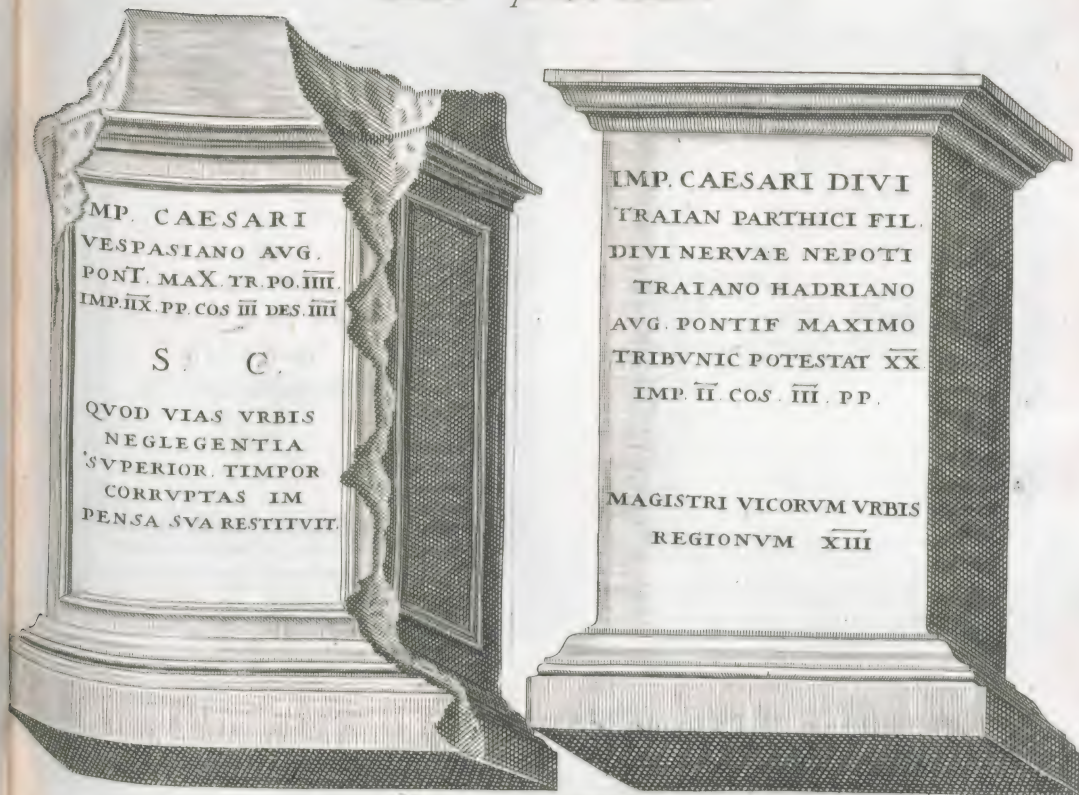 MP. CAESARI
VESPASIANO AVG.
PONT. MAX. TR. PO. I̅I̅I̅I̅.
IMP. I̅I̅X̅. PP. COS I̅I̅I̅ DES. I̅I̅I̅I̅
S. C.
QVOD VIAS VRBIS
NEGLEGENTIA
SVPERIOR. TIMPOR
CORRVPTAS IM
PENSA SVA RESTITVIT.
IMP. CAESARI DIVI
TRAIAN PARTHICI FIL.
DIVI NERVAE NEPOTI
TRAIANO HADRIANO
AVG. PONTIF MAXIMO
TRIBVNIC POTESTAT X̅X̅.
IMP. I̅I̅. COS. I̅I̅I̅. PP.
MAGISTRI VICORVM VRBIS
REGIONVM X̅I̅I̅I̅